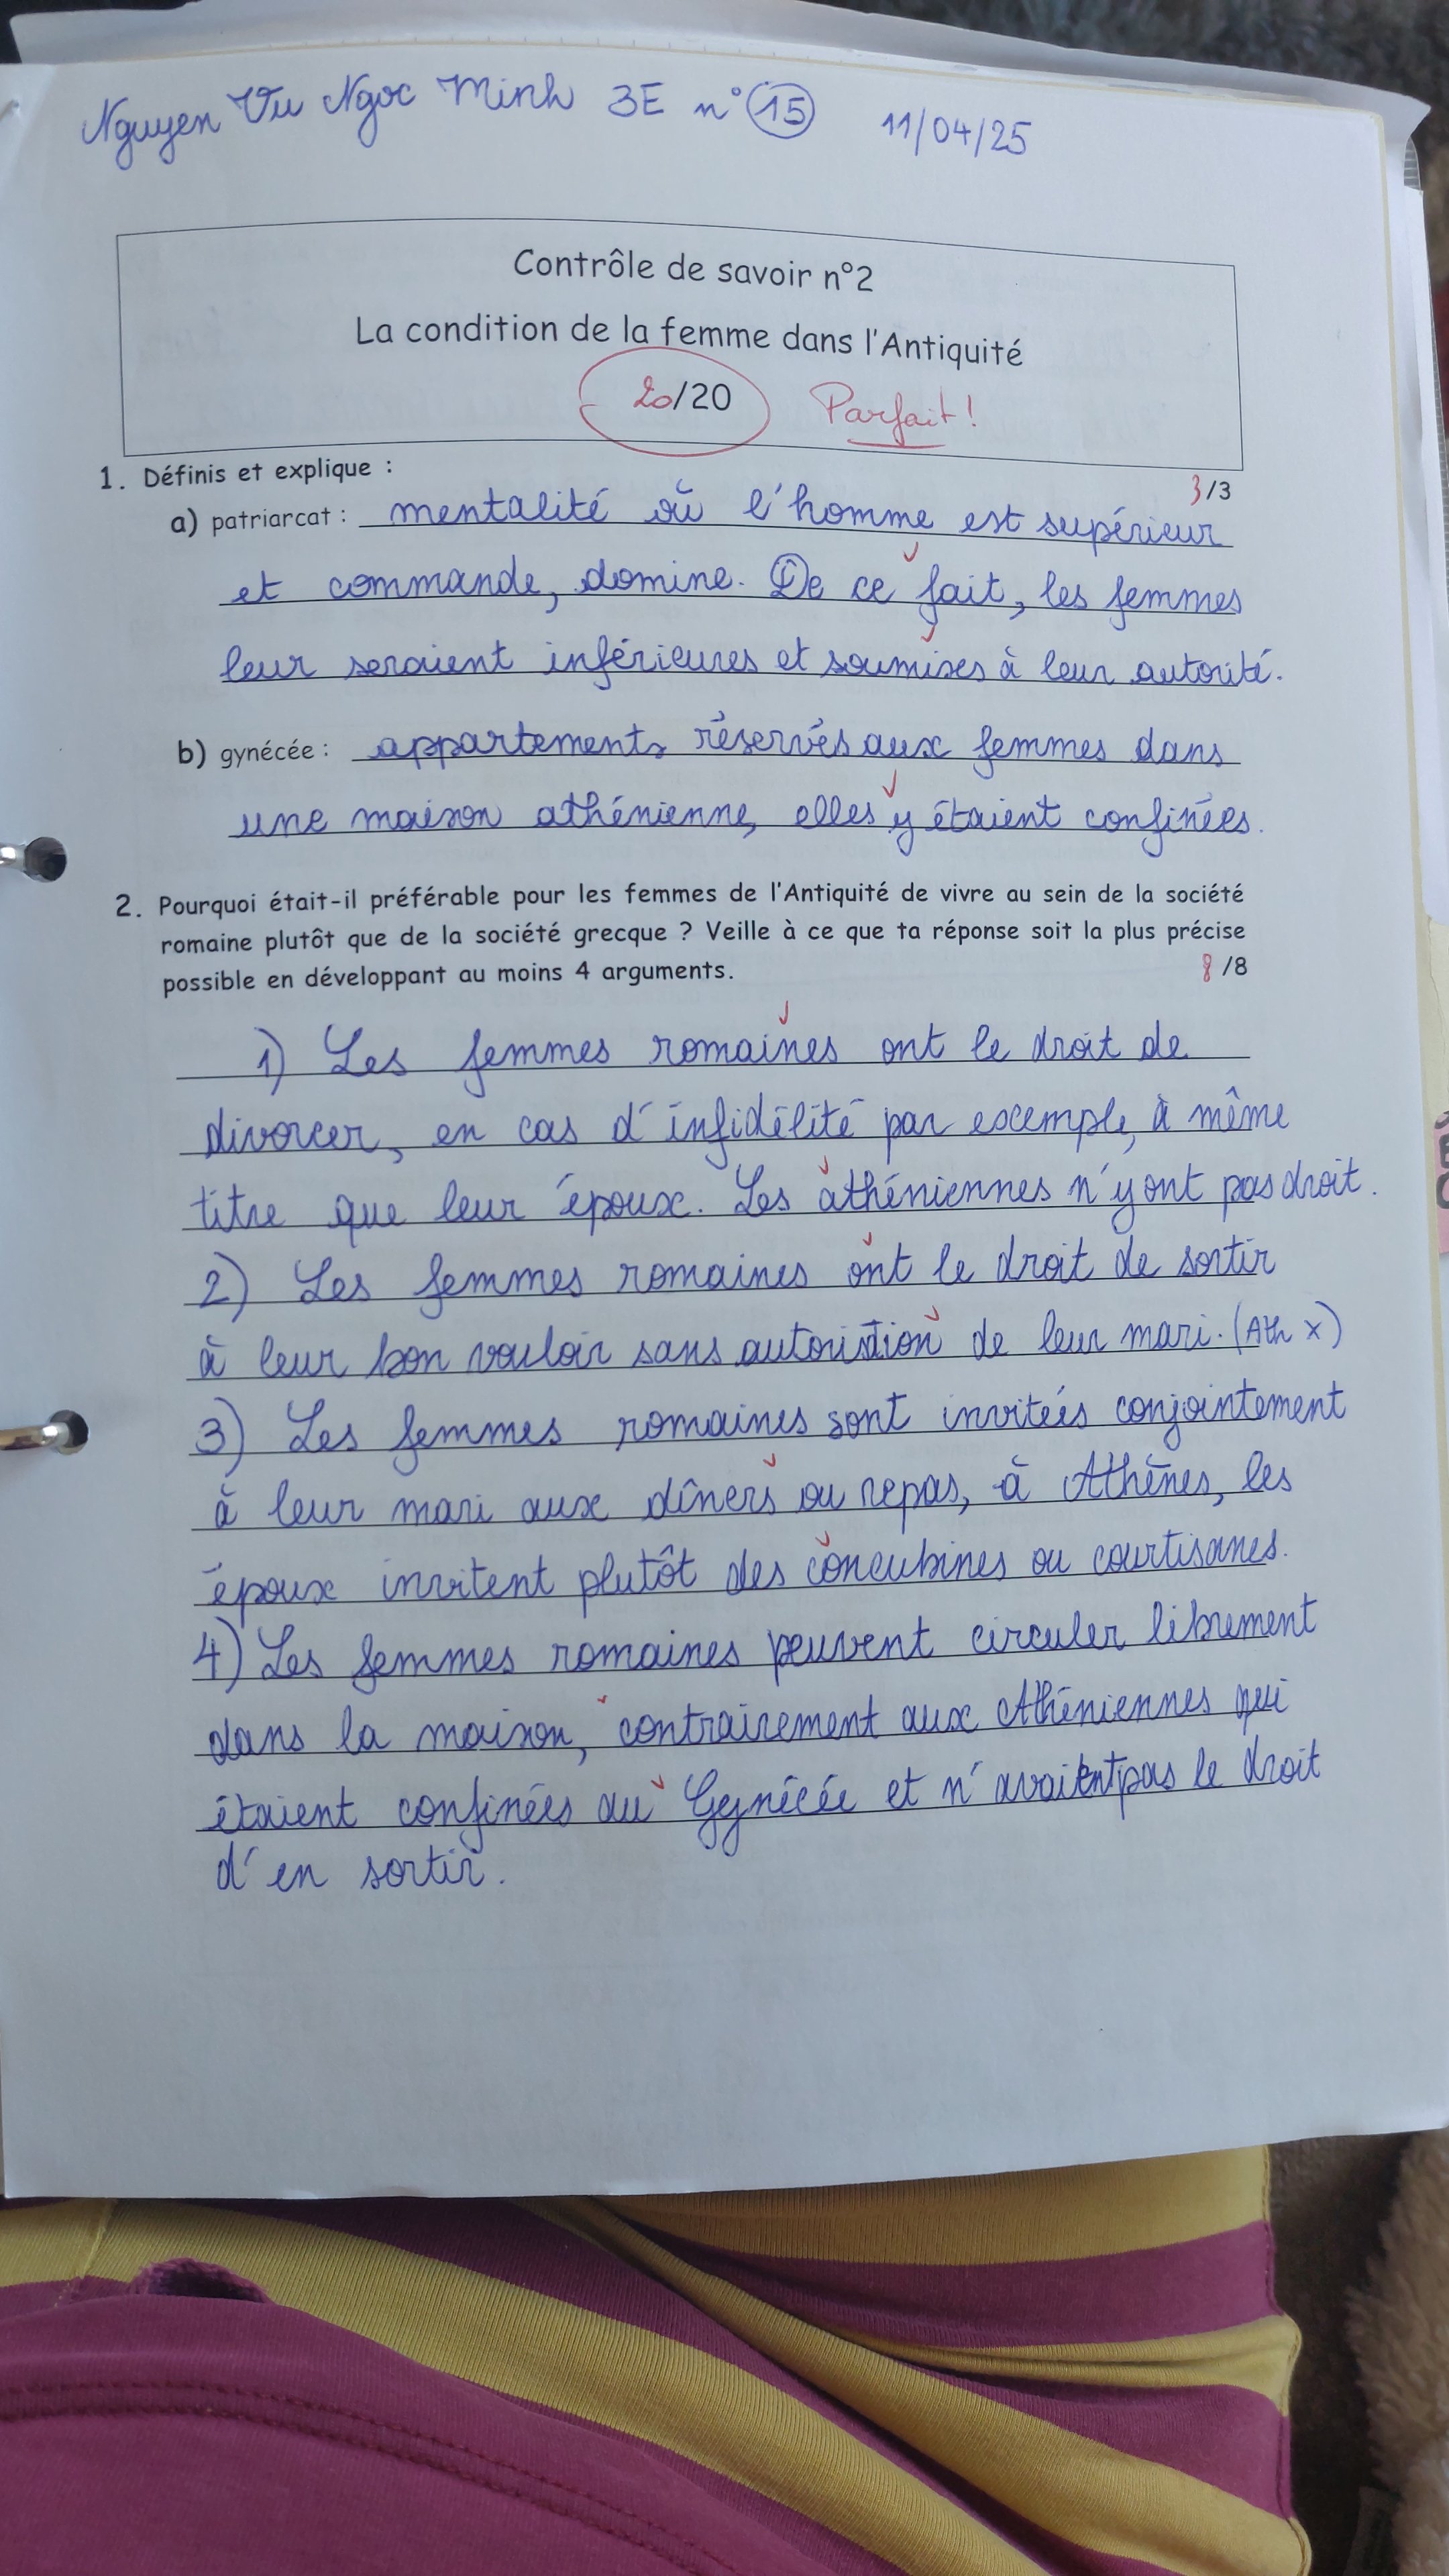 Nguyen Vu Ngoc Minh 3E n° 15 11/04/25
Contrôle de savoir n°2
La condition de la femme dans l'Antiquité
20/20 Parfait !
1. Définis et explique :
3/3
a) patriarcat : mentalité où l'homme est supérieur
et commande, domine. De ce fait, les femmes
leur seraient inférieures et soumises à leur autorité.
b) gynécée : appartements réservés aux femmes dans
une maison athénienne, elles y étaient confinées.
2. Pourquoi était-il préférable pour les femmes de l'Antiquité de vivre au sein de la société
romaine plutôt que de la société grecque ? Veille à ce que ta réponse soit la plus précise
possible en développant au moins 4 arguments. 8/8
1) Les femmes romaines ont le droit de
divorcer, en cas d'infidélité par exemple, à même
titre que leur époux. Les athéniennes n'y ont pas droit.
2) Les femmes romaines ont le droit de sortir
à leur bon vouloir sans de leur mari. (Ath x)
3) Les femmes romaines sont invitées conjointement
à leur mari aux dîners ou repas, à Athènes, les
époux invitent plutôt des concubines ou courtisanes.
4) Les femmes romaines peuvent circuler librement
dans la maison, contrairement aux Athéniennes qui
étaient confinées au Gynécée et n'avaient pas le droit
d'en sortir.